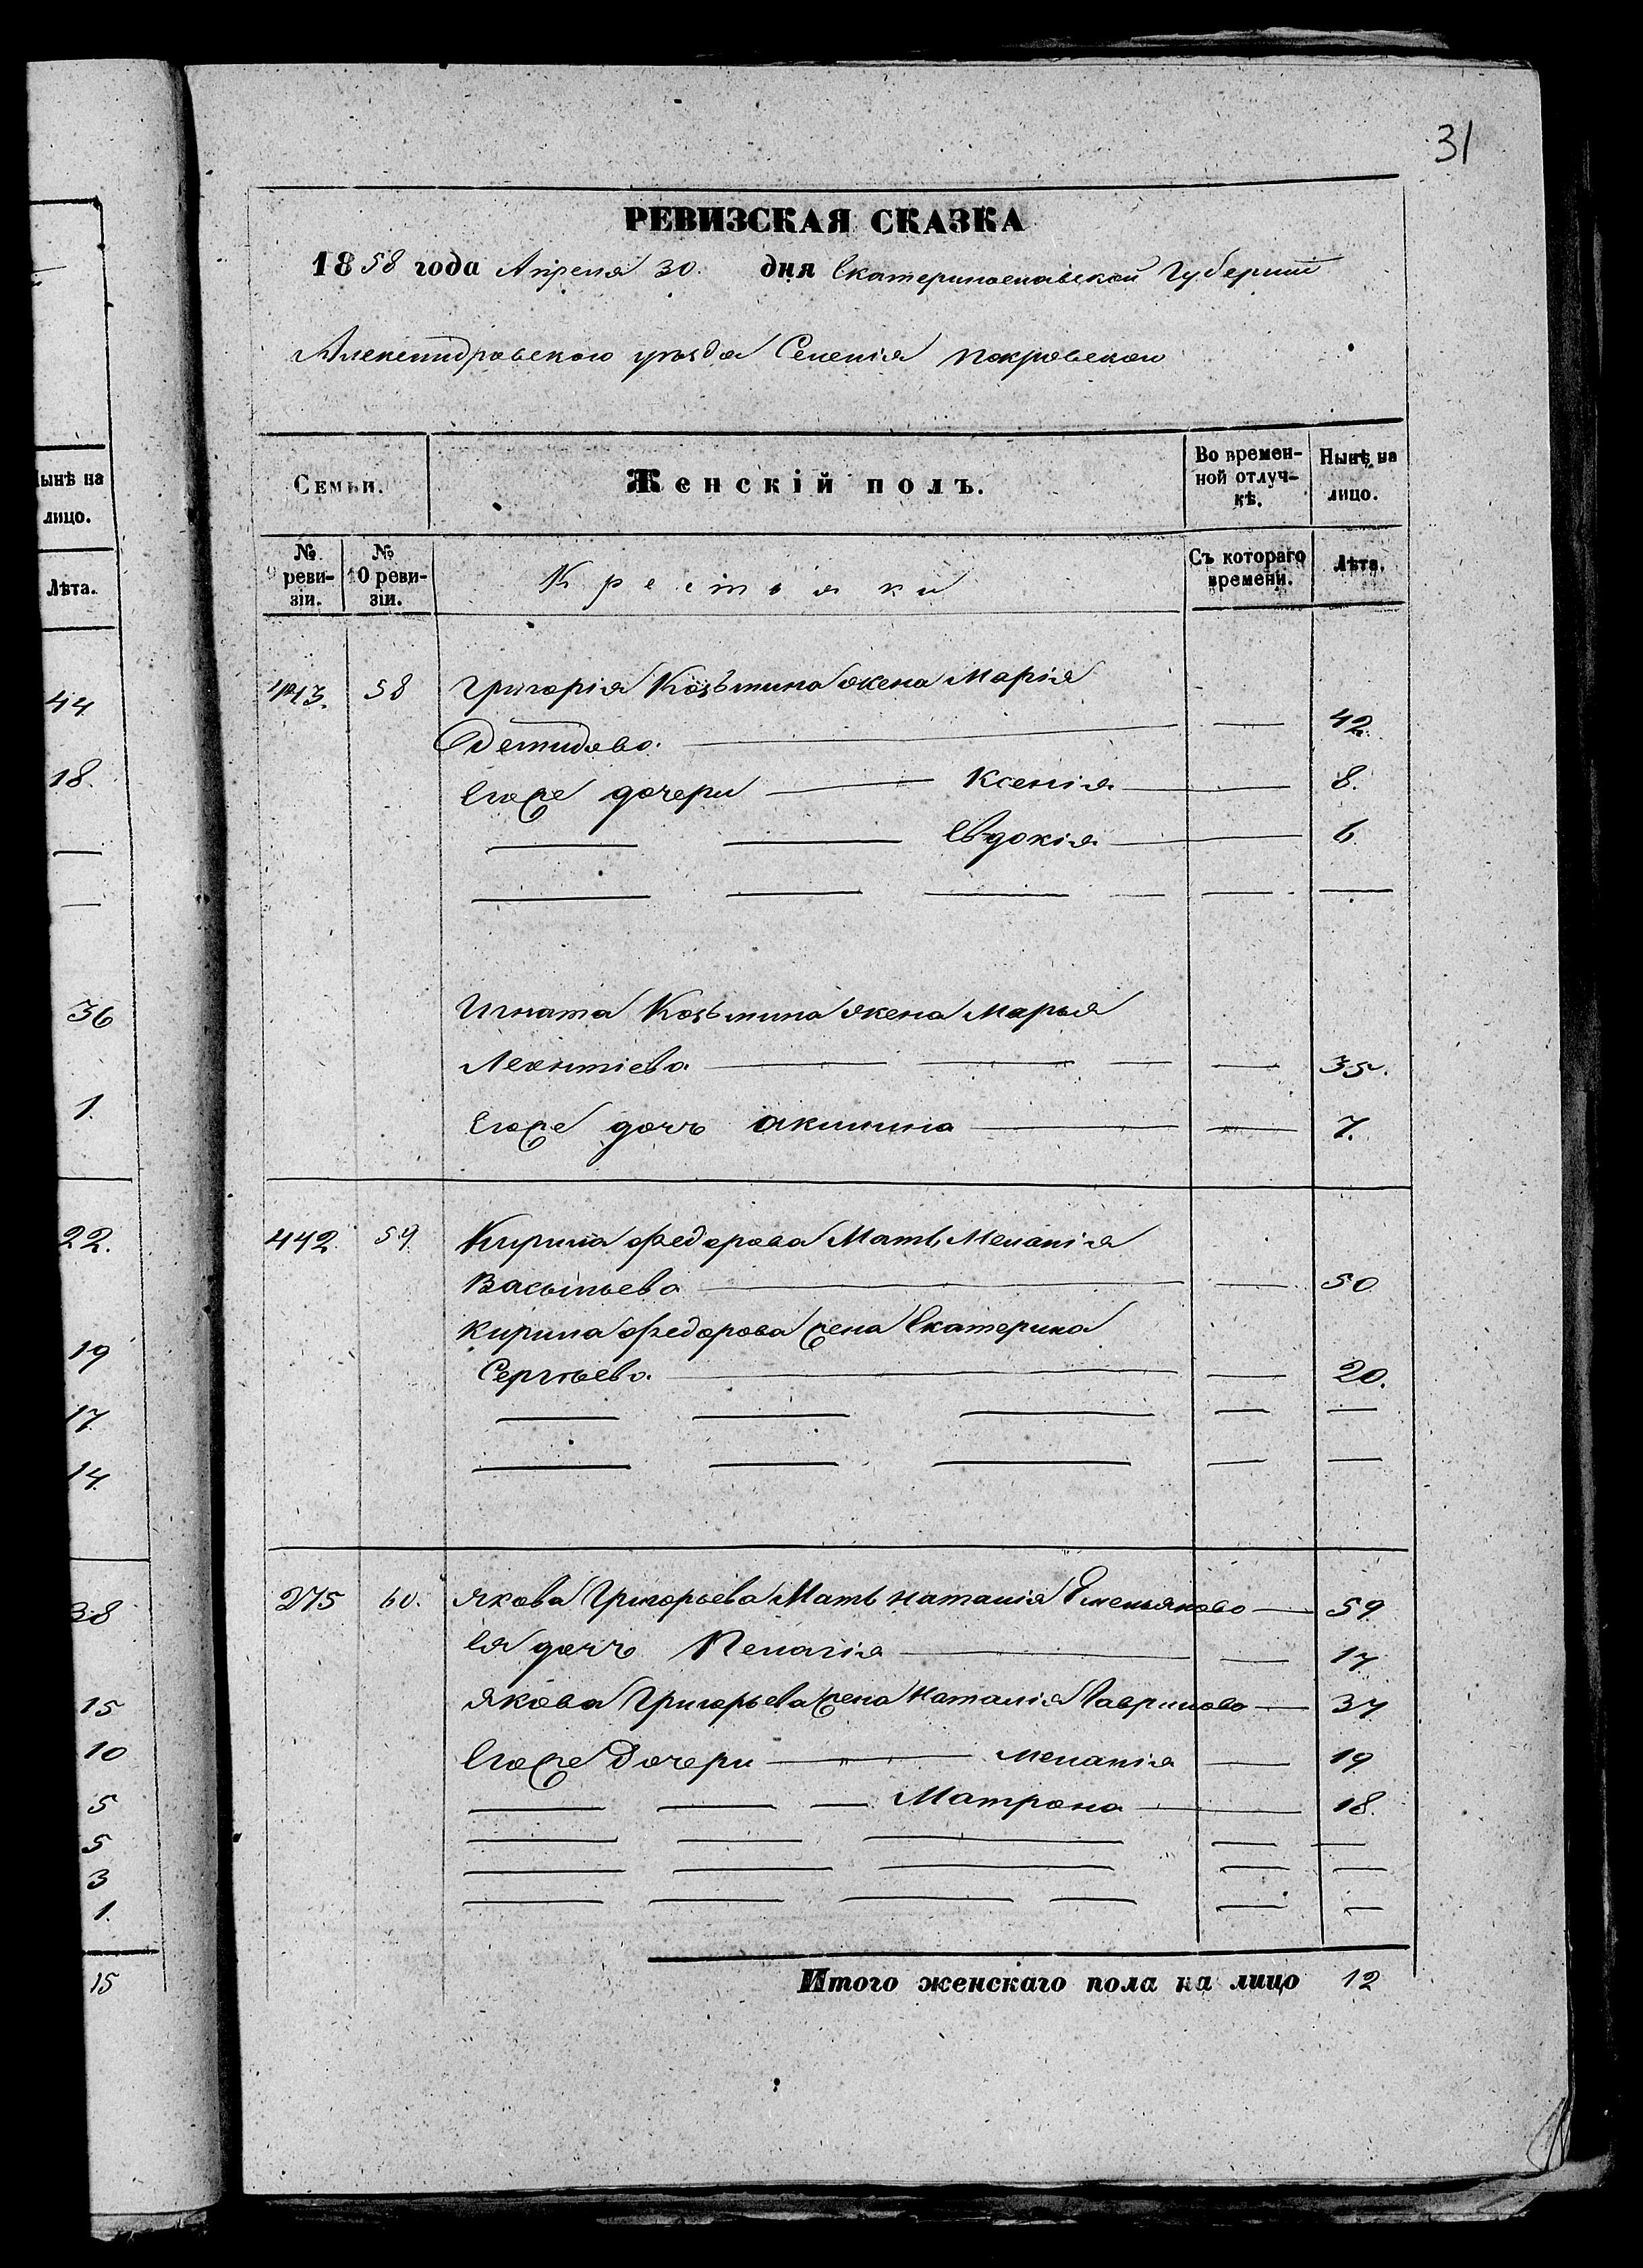 31
РЕВИЗСКАЯ СКАЗКА
1858 года Апреля 30. дня Екатеринославской Губернии
Александровскаго уѣзда Селенія Покровскаго
Семьи. Женскій полъ. Во времен-ной отлуч-кѣ. Нынѣ на лицо.
№ 9 реви-зіи. № 10 реви-зіи. Крестьянки Съ котораго времени. Лѣта.
443. 58 Григорія Козьмина жена Марія
Демидова. 42.
Егоже дочери Ксенія 8.
Евдокія 6
Игната Козьмина жена Марья
Леонтіева 35.
Егоже дочь Акилина 7.
442 59 Кирила Федорова Мать Меланія
Васильева 50
Кирила Федорова жена Екатерина
Сергѣева. 20.
275 60. Якова Григорьева Мать Наталія Емельянова 59
Ея дочь Пелагія 17
Якова Григорьева жена Наталія Гаврилова 37
Егоже Дочери Меланія 19
Матрона 18.
Итого женскаго пола на лицо 12
ынѣ на
лицо.
Лѣта.
44
18.
36
1.
22.
19
17
14.
38
15
10
5
5
3
1.
15